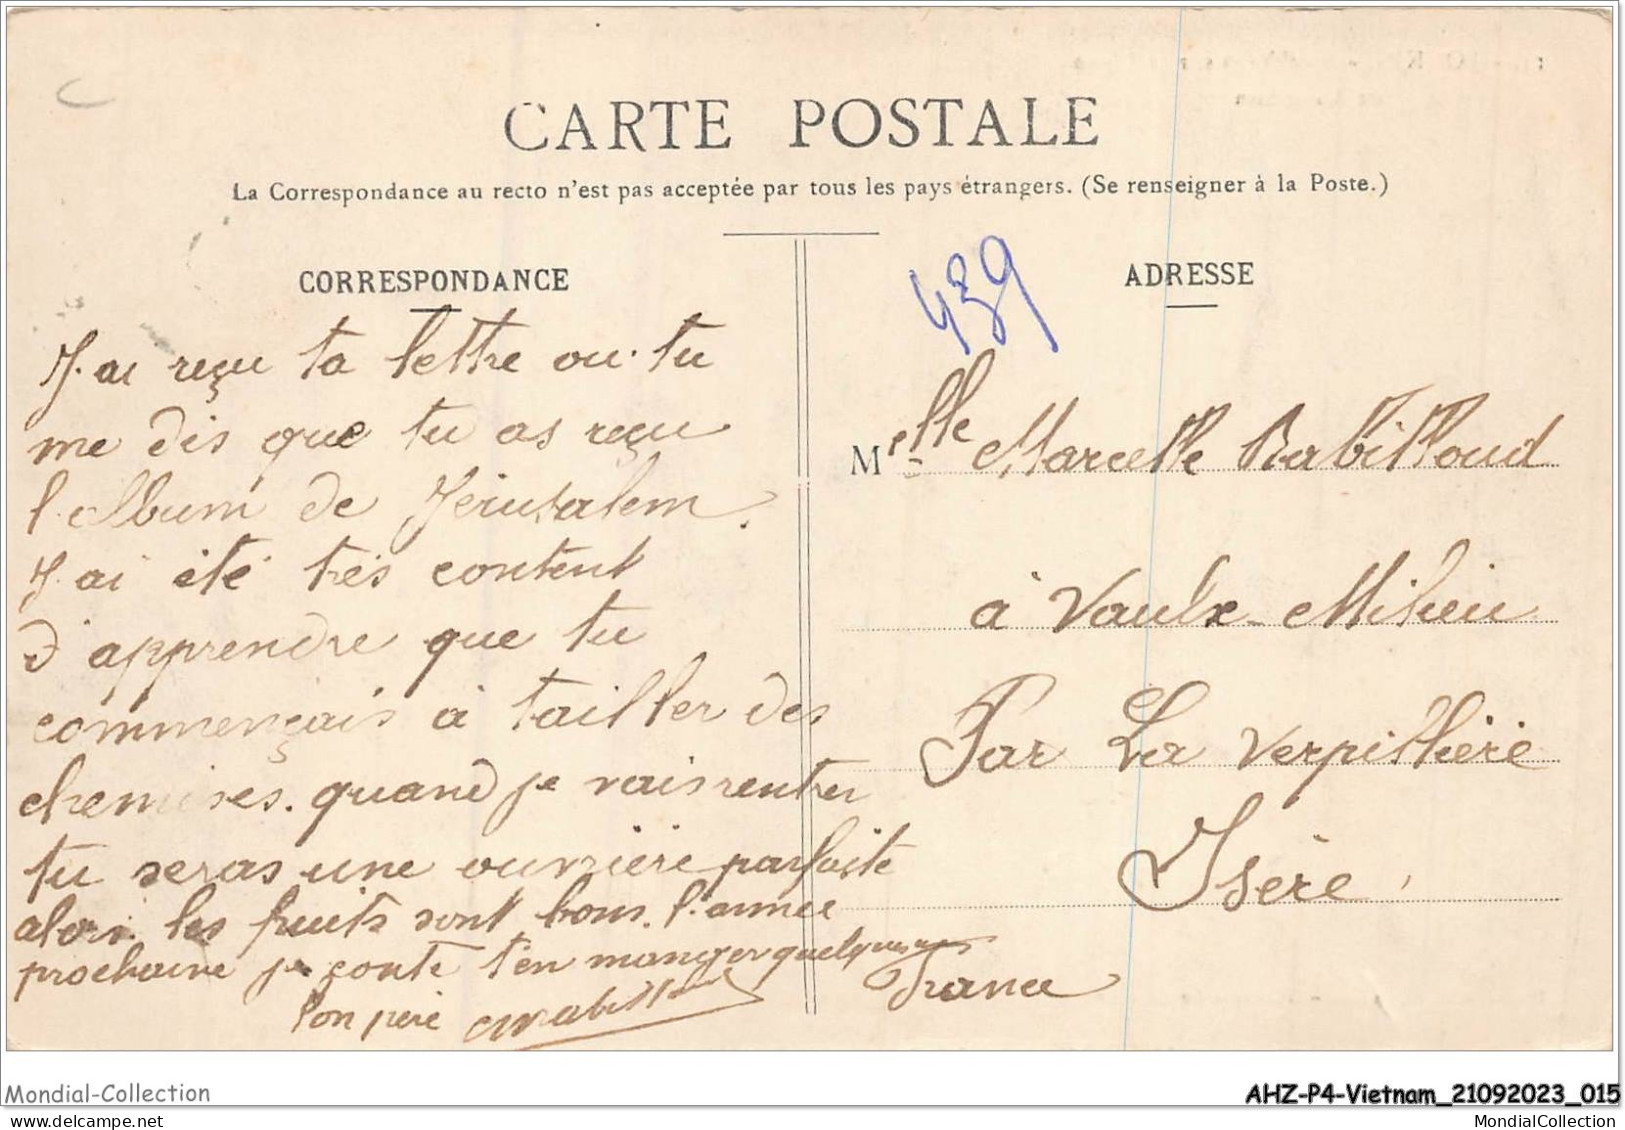 CARTE POSTALE
La Correspondance au recto n'est pas acceptée par tous les pays étrangers. (Se renseigner à la Poste.)
CORRESPONDANCE
J'ai reçu ta lettre ou tu
me dis que tu as reçu
l'album de Jérusalem.
J'ai été très content
d'apprendre que tu
commençais à tailler des
chemises. quand je vais rentrer
tu seras une ouvrière parfaite
alors les fruits sont bons. l'année
prochaine je conte t'en manger quelques uns
Ton père
439
ADRESSE
Melle Marcelle Rabilloud
à Vaulx-Milieu
Par La Verpillière
Isère
France
Mondial-Collection
AHZ-P4-Vietnam_21092023_015
MondialCollection